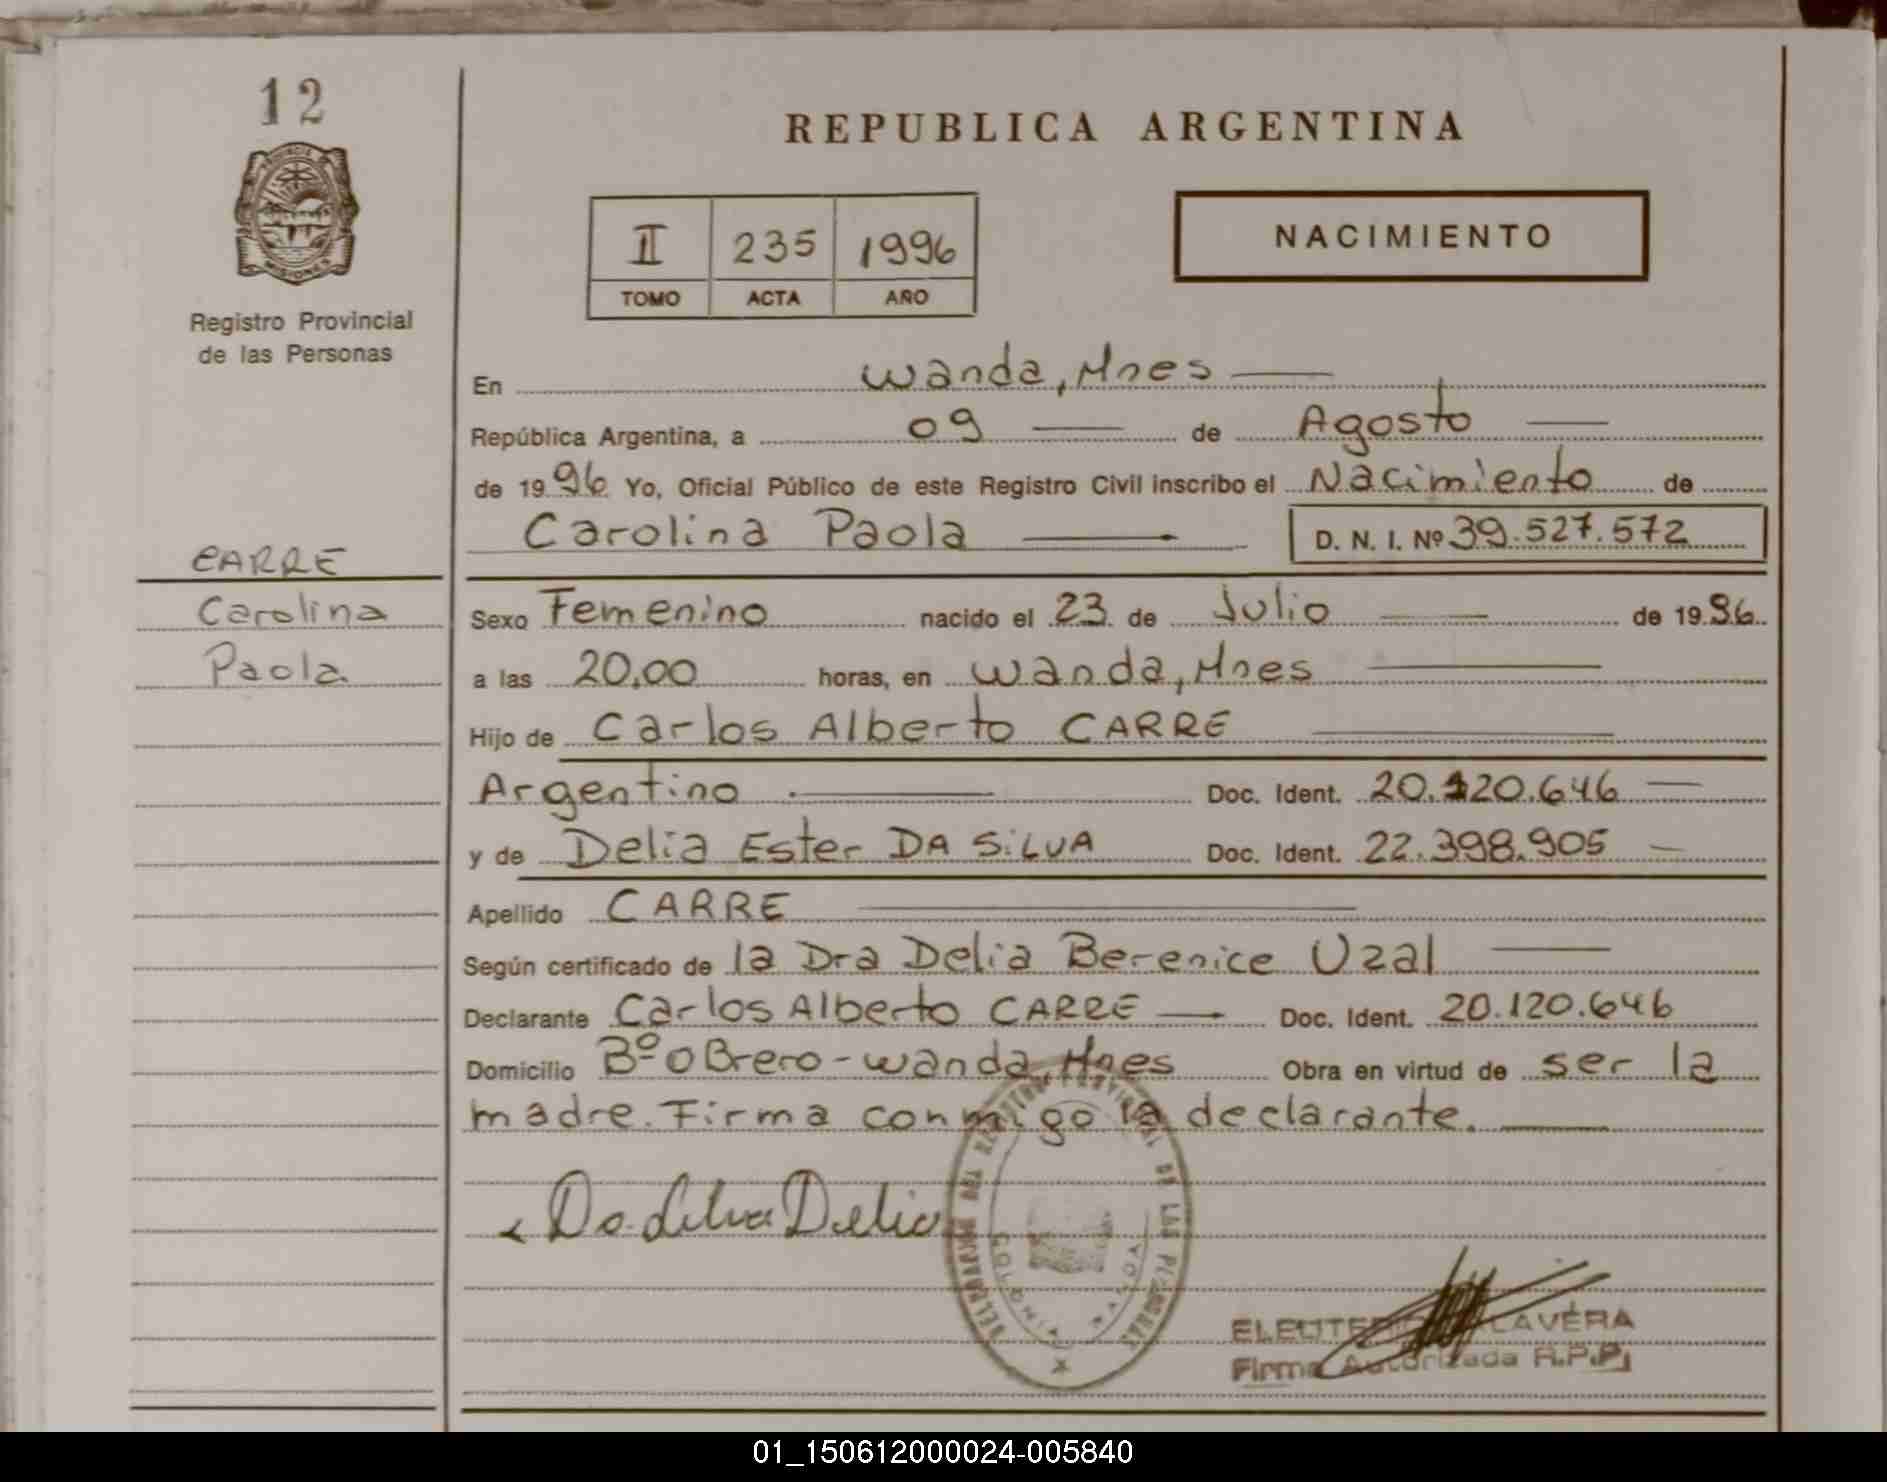 12
PROVINCIA DE
MISIONES
Registro Provincial
de las Personas
CARRE
Carolina
Paola
REPUBLICA ARGENTINA
II 235 1996
TOMO ACTA AÑO
NACIMIENTO
En Wanda, Mnes
República Argentina, a 09 de Agosto
de 1996 Yo, Oficial Público de este Registro Civil inscribo el Nacimiento de
Carolina Paola D. N. I. Nº 39.527.572
Sexo Femenino nacido el 23 de Julio de 1996
a las 20,00 horas, en Wanda, Mnes
Hijo de Carlos Alberto CARRE
Argentino Doc. Ident. 20.120.646
y de Delia Ester DA SILVA Doc. Ident. 22.398.905
Apellido CARRE
Según certificado de la Dra Delia Berenice Uzal
Declarante Carlos Alberto CARRE Doc. Ident. 20.120.646
Domicilio Bº Obrero - Wanda, Mnes Obra en virtud de ser la
madre. Firma conmigo la declarante.
Da Silva Delia
DEL REGISTRO PROVINCIAL DE LAS PERSONAS
COLONIA WANDA
LAVERA
Firma Autorizada R.P.P.
01_150612000024-005840